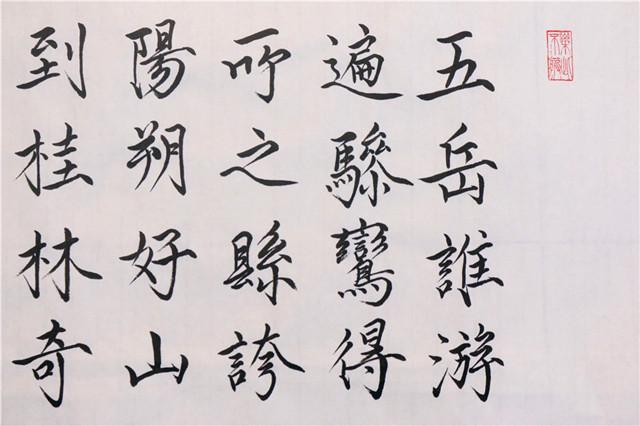 五岳誰游
遍驂鸞得
所之縣誇
陽朔好山
到桂林奇